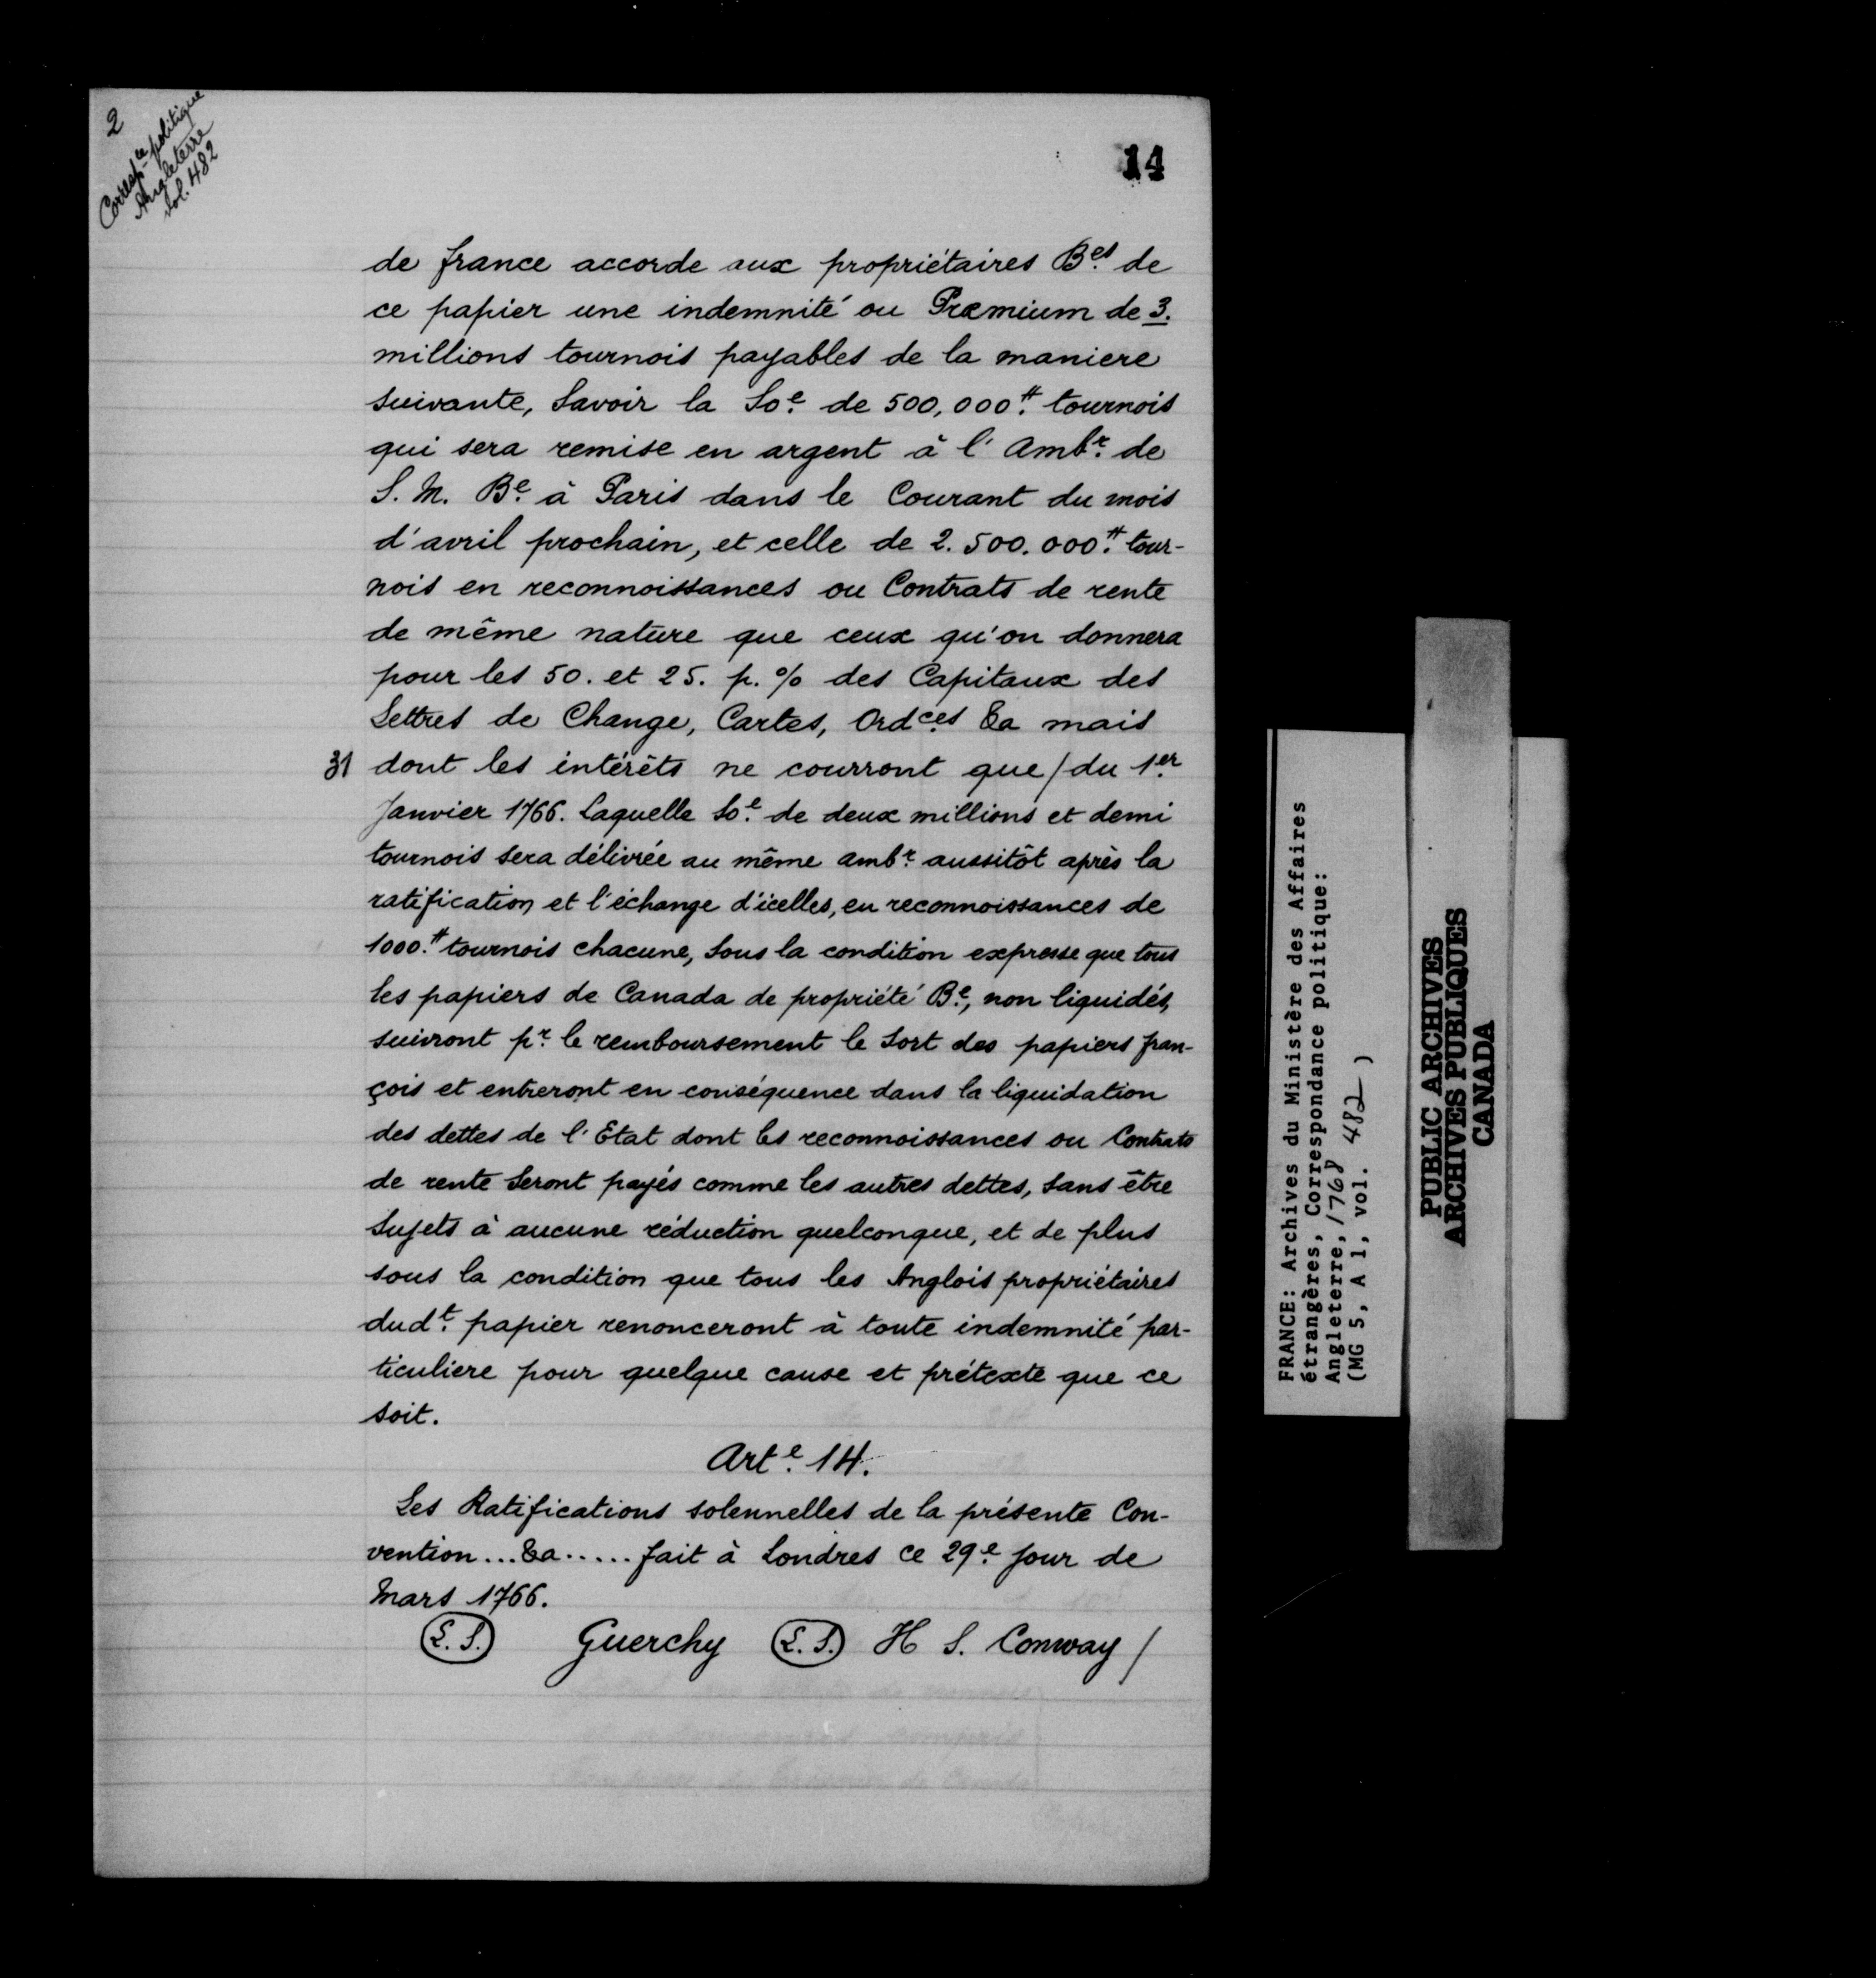 2
Corresp.ce politique
Angleterre
vol. 482
14
de france accorde aux propriétaires B.es de
ce papier une indemnité ou Præmium de 3.
millions tournois payables de la maniere
suivante, Savoir la So.e de 500,000.# tournois
qui sera remise en argent à l'Amb.r de
S. M. B.e à Paris dans le Courant du mois
d'avril prochain, et celle de 2.500.000.# tour-
nois en reconnoissances ou Contrats de rente
de même nature que ceux qu'on donnera
pour les 50. et 25. p. % des Capitaux des
Lettres de Change, Cartes, Ord.ces &a mais
31 dont les intérêts ne courront que / du 1.er
Janvier 1766. Laquelle So.e de deux millions et demi
tournois sera délivrée au même amb.r aussitôt après la
ratification et l'échange d'icelles, en reconnoissances de
1000.# tournois chacune, Sous la condition expresse que tous
les papiers de Canada de propriété B.e, non liquidés,
suivront p.r le remboursement le Sort des papiers fran-
çois et entreront en conséquence dans la liquidation
des dettes de l'Etat dont les reconnoissances ou Contrats
de rente Seront payés comme les autres dettes, Sans être
Sujets à aucune réduction quelconque, et de plus
sous la condition que tous les Anglois propriétaires
dud.t papier renonceront à toute indemnité par-
ticuliere pour quelque cause et prétexte que ce
soit.
Art.e 14.
Les Ratifications solennelles de la présente Con-
vention...&a.....fait à Londres ce 29.e Jour de
Mars 1766.
L.S. Guerchy L.S. H S. Conway /
FRANCE: Archives du Ministère des Affaires
étrangères, Correspondance politique:
Angleterre, 1768
(MG 5, A 1, vol. 482)
PUBLIC ARCHIVES
ARCHIVES PUBLIQUES
CANADA